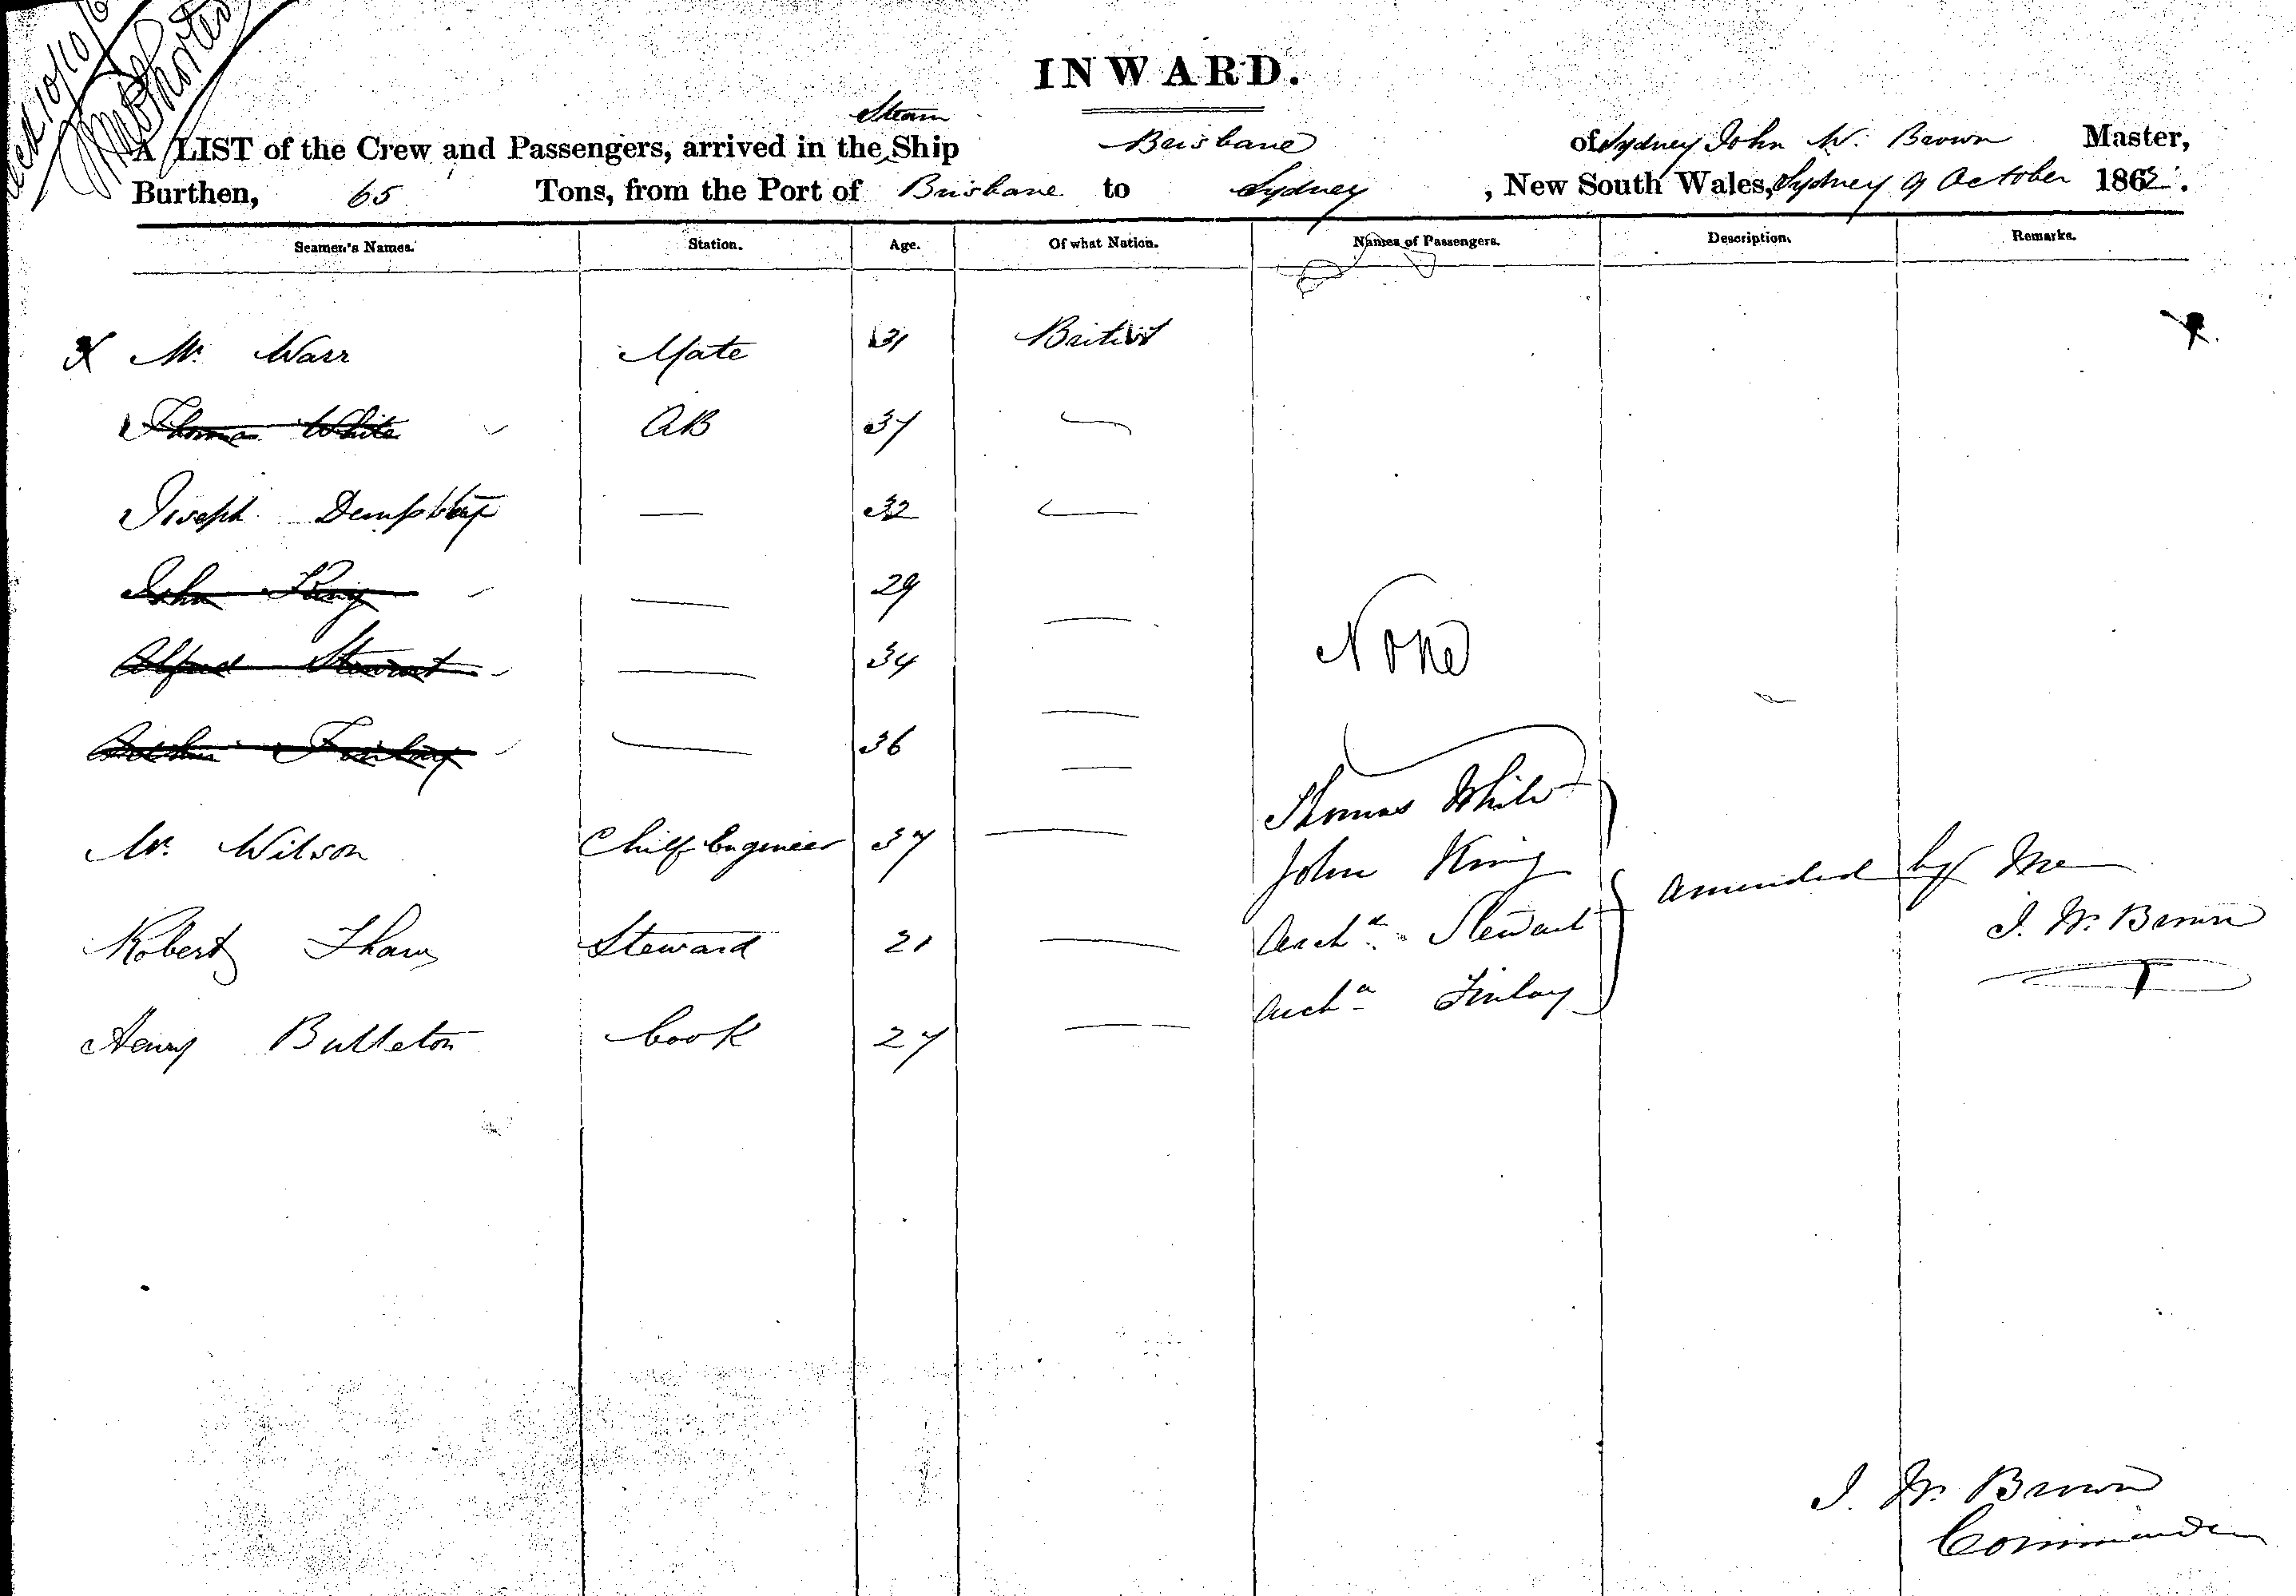 INWARD.
Steam
A LIST of the Crew and Passengers, arrived in the Ship Brisbane of Sydney John W. Brown Master,
Burthen, 65 Tons, from the Port of Brisbane to Sydney, New South Wales, Sydney 9 October 1862.
Seamen's Names. Station. Age. Of what Nation. Names of Passengers. Description. Remarks.
X Mr. Warr Mate 31 British
Thomas White AB 37
Joseph — 32 —
John King — 29 —
Stewart — 34 —
Finlay — 36 —
None
Thomas White
Mr. Wilson Chief Engineer 37 —
John King
amended by Me
Archd. Stewart
J. W. Brown
Robert Steward 21 —
Archd. Finlay
Henry Bulleton Cook 27 —
J. W. Brown
Commander